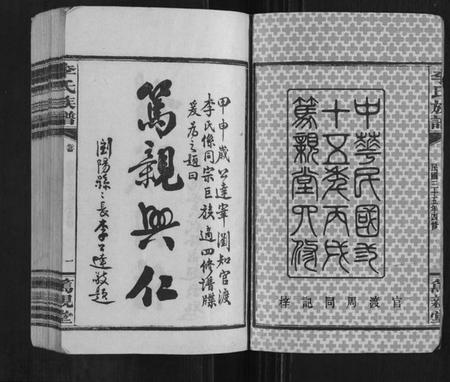 李氏族譜
民國三十五年四修
篤親堂
中華民國弎
十五秊丙戌
篤親堂四修
官渡周同記梓
甲申歲公達宰瀏知官渡
李氏係同宗巨族適四修譜牒
爰為之題曰
篤親興仁
瀏陽縣々長李公達敬題
李氏族譜
卷首
一
篤親堂